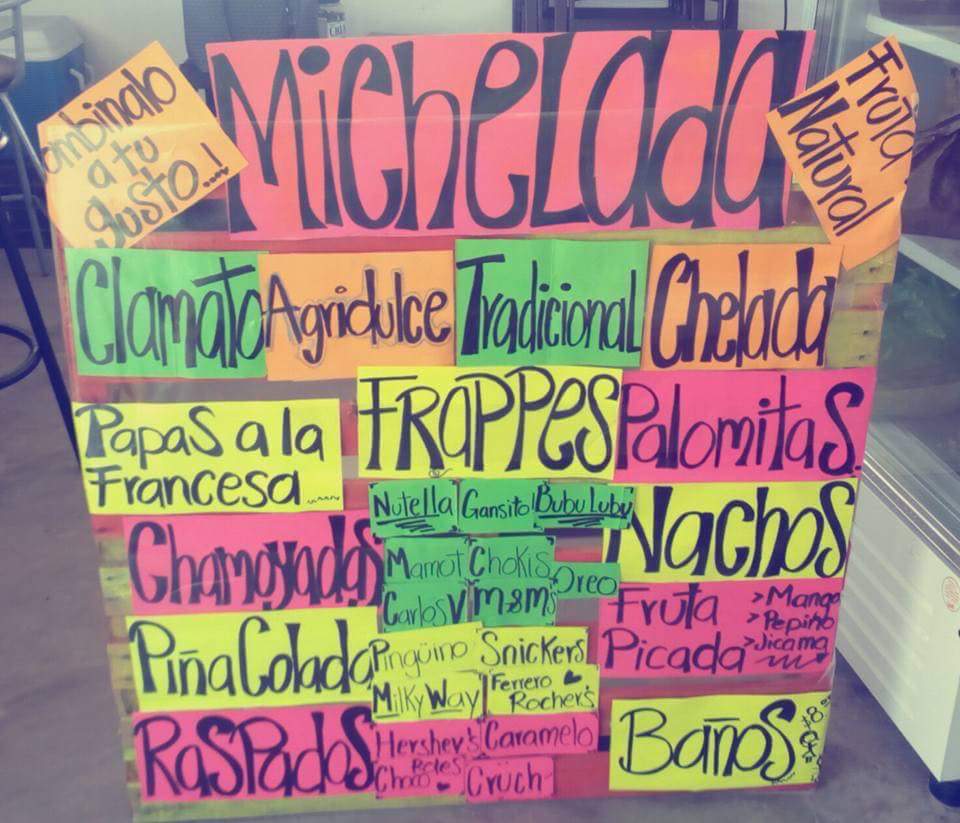 ombinalo
a tu
gusto...!
Michelada
Fruta
Natural
Clamato
Agridulce
Tradicional
Chelada
Papas a la
Francesa
FRAPPes
Palomitas.
Nutella
Gansito
Bubu Lubu
Nachos
Chamoyadas
Mamot
Chokis
Oreo
Carlos V
m&m's
Fruta
Picada
>Mango
>Pepino
>Jicama
Piña Colada
Pingüino
Snickers
Milky Way
Ferrero
Rocher's
Raspados
Hershey's
Caramelo
Choco
Roles
Crüch
Baños